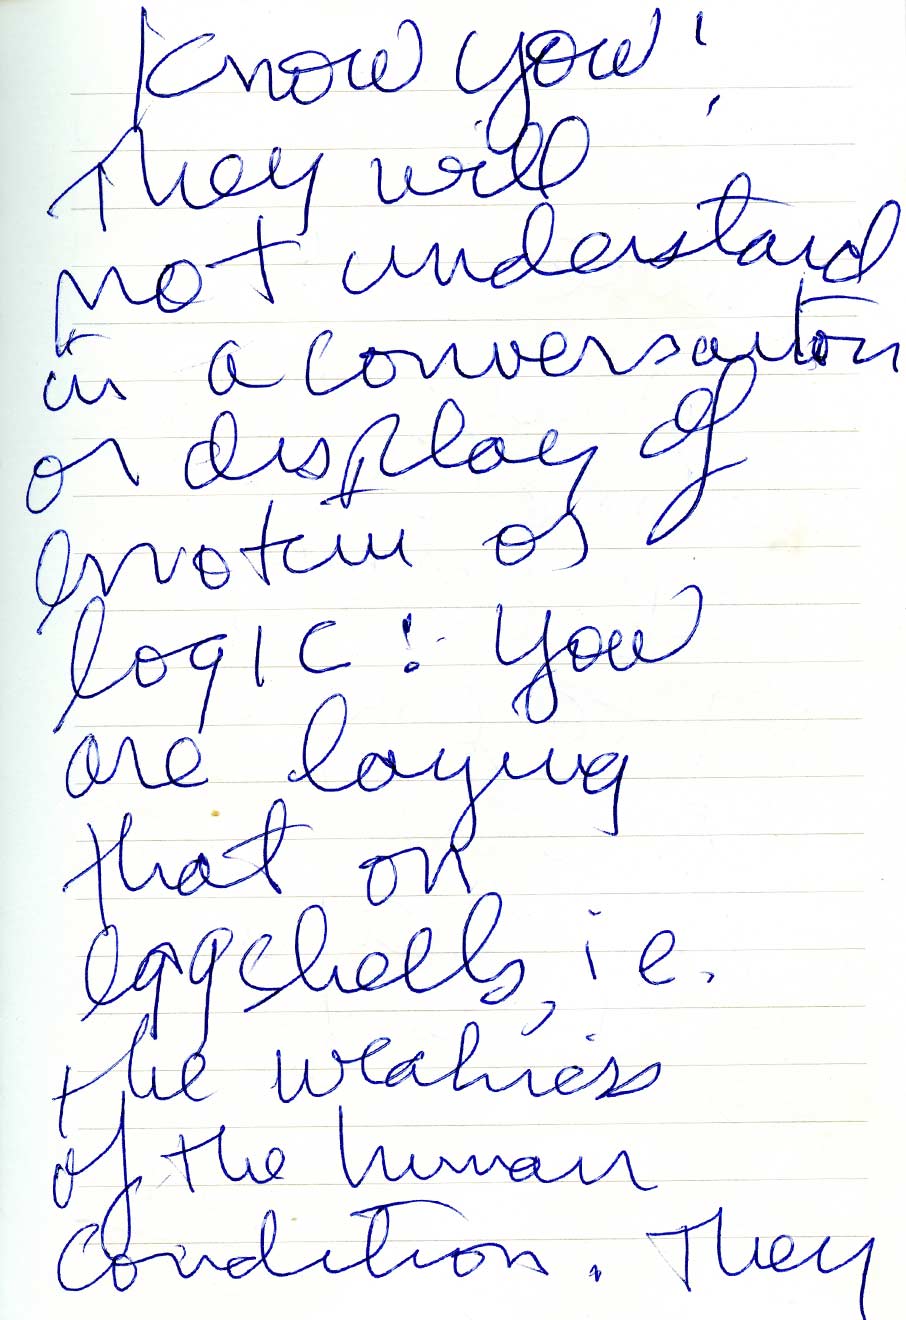 Know you!
They will
not understand
in a conversation
or display of
emotion or
logic! You
are laying
that on
eggshells, i e.
the weakness
of the human
condition. They